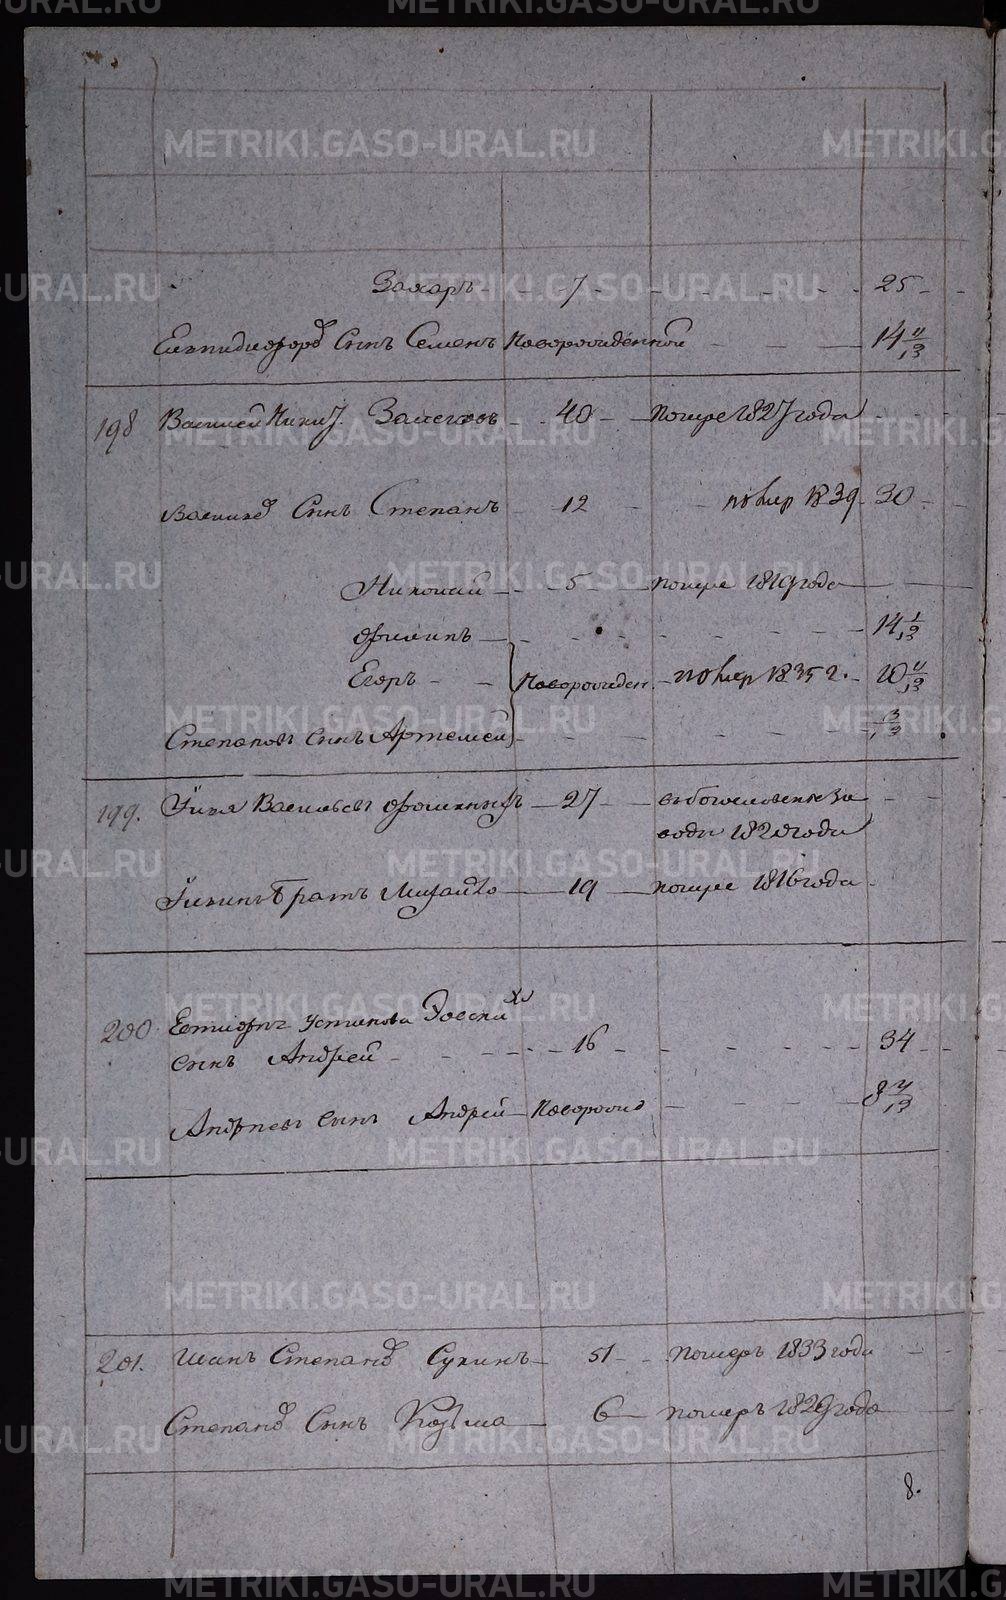 METRIKI.GASO-URAL.RU
Захаръ - 7 - - - 25 -
Сынъ Семенъ Новорожденной - - 14 11/12
198 Василей Никит. - 40 - помре 1827 года
Сынъ Степанъ - 12 - помер 1839. 30 -
Николай - 5 - помре 1819 года
Филипъ - - - 14 1/12
Егоръ - - Новорожден. - помер 1835 г. - 10 11/12
Степановъ сынъ Артемей - - - 3/12
199. Илья Васильевъ - 27 - в богословские за
воды 1820 года
Ильинъ братъ Михайло - 19 - помре 1816 года
200 Устинова
сынъ Андрей - - 16 - - - 34 -
Андреевъ сынъ Андрей - Новорожд - - 8
201. Иванъ Степановъ Сухинъ - 51 - померъ 1833 года
Степановъ Сынъ Козьма - 6 - померъ 1829 года
8.